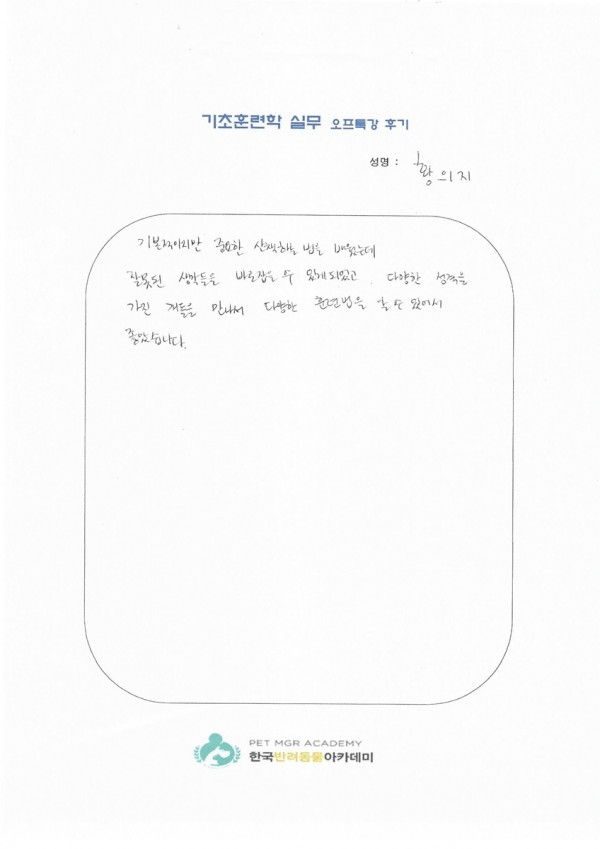 기초훈련학 실무 오프특강 후기
성명 : 황의지
기본적이지만 중요한 산책하는 법을 배웠는데
잘못된 생각들을 바로잡을 수 있게되었고, 다양한 성격을
가진 개들을 만나서 다양한 훈련법을 할 수 있어서
좋았습니다.
PET MGR ACADEMY
한국반려동물아카데미